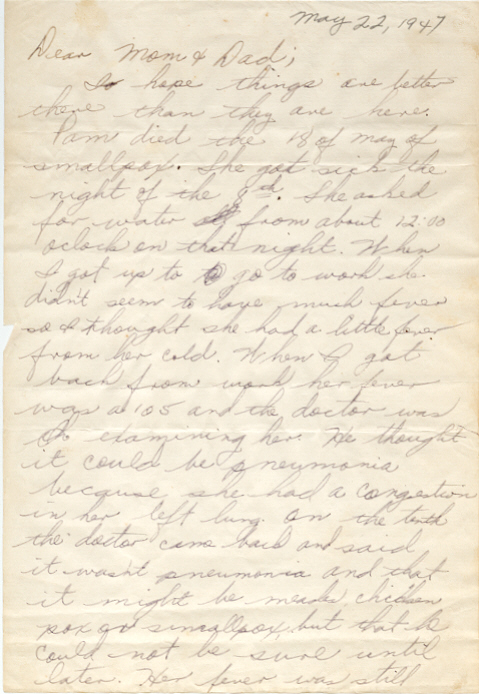 May 22, 1947
Dear Mom & Dad;
I hope things are better
there than they are here.
Pam died the 18 of may of
smallpox. She got sick the
night of the 8th. She asked
for water from about 12:00
oclock on that night. When
I got up to go to work she
didn't seem to have much fever
so I thought she had a little fever
from her cold. When I got
back from work her fever
was a 105 and the doctor was
examining her. He thought
it could be pneumonia
because she had a congestion
in her left lung. On the tenth
the doctor came back and said
it wasn't pneumonia and that
it might be measles chicken
pox or smallpox, but that he
could not be sure until
later. Her fever was still